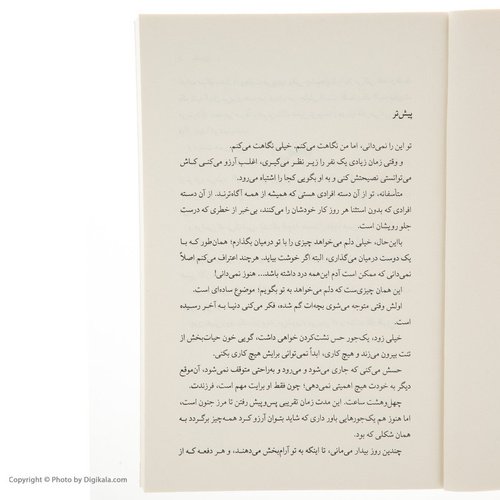 پیش‌تر
تو این را نمی‌دانی، اما من نگاهت می‌کنم. خیلی نگاهت می‌کنم.
و وقتی زمان زیادی یک نفر را زیـر نظـر می‌گیـری، اغلـب آرزو می‌کنـی کـاش
می‌توانستی نصیحتش کنی و به او بگویی کجا را اشتباه می‌رود.
متأسفانه، تو از آن دسته افرادی هستی که همیشه از همـه آگاه‌ترنـد. از آن دسـته
افرادی که بدون استثنا هر روز کار خودشان را می‌کنند، بی‌خبر از خطری که درست
جلو رویشان است.
بااین‌حال، خیلی دلم می‌خواهد چیزی را با تو درمیان بگذارم؛ همان‌طور کـه بـا
یک دوست درمیان می‌گذاری، البته اگر خوشت بیاید. هرچند اعتراف می‌کنم اصلاً
نمی‌دانی که ممکن است آدم این‌همه درد داشته باشد... هنوز نمی‌دانی!
این همان چیزی‌ست که دلم می‌خواهد به تو بگویم؛ موضوع ساده‌ای است.
اولش وقتی متوجه می‌شوی بچه‌ات گم شده، فکر می‌کنی دنیـا بـه آخـر رسـیده
است.
خیلی زود، یک‌جور حس نشت‌کردن خواهی داشت، گویی خون حیات‌بخش از
تنت بیرون می‌زند و هیچ کاری، ابداً نمی‌توانی برایش هیچ کاری بکنی.
حسش می‌کنی که جاری می‌شود و می‌رود و به‌راحتی متوقف نمی‌شود، آن‌موقع
دیگر به خودت هیچ اهمیتی نمی‌دهی؛ چون فقط او برایت مهم است، فرزندت.
چهل‌وهشت ساعت. این مدت زمان تقریبی پس‌وپیش رفتن تا مرز جنون است،
اما هنوز هم یک‌جورهایی باور داری که شاید بتـوان آرزو کـرد همـه‌چیـز برگـردد بـه
همان شکلی که بود.
چندین روز بیدار می‌مانی، تا اینکه به تو آرام‌بخش می‌دهنـد، و هـر دفعـه کـه از
Copyright © Photo by Digikala.com